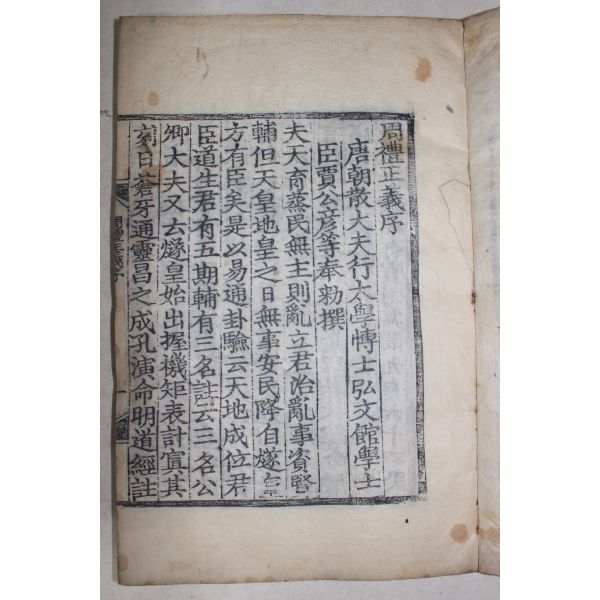 周禮正義序
唐朝散大夫行太學博士弘文館學士
臣賈公彦等奉勑撰
夫天育蒸民無主則亂立君治亂事資賢
輔但天皇地皇之日無事安民降自燧皇
方有臣矣是以易通卦驗云天地成位君
臣道生君有五期輔有三名註云三名公
卿大夫又云燧皇始出握機矩表計寘其
刻曰蒼牙通靈昌之成孔演命明道經註
周禮正義序